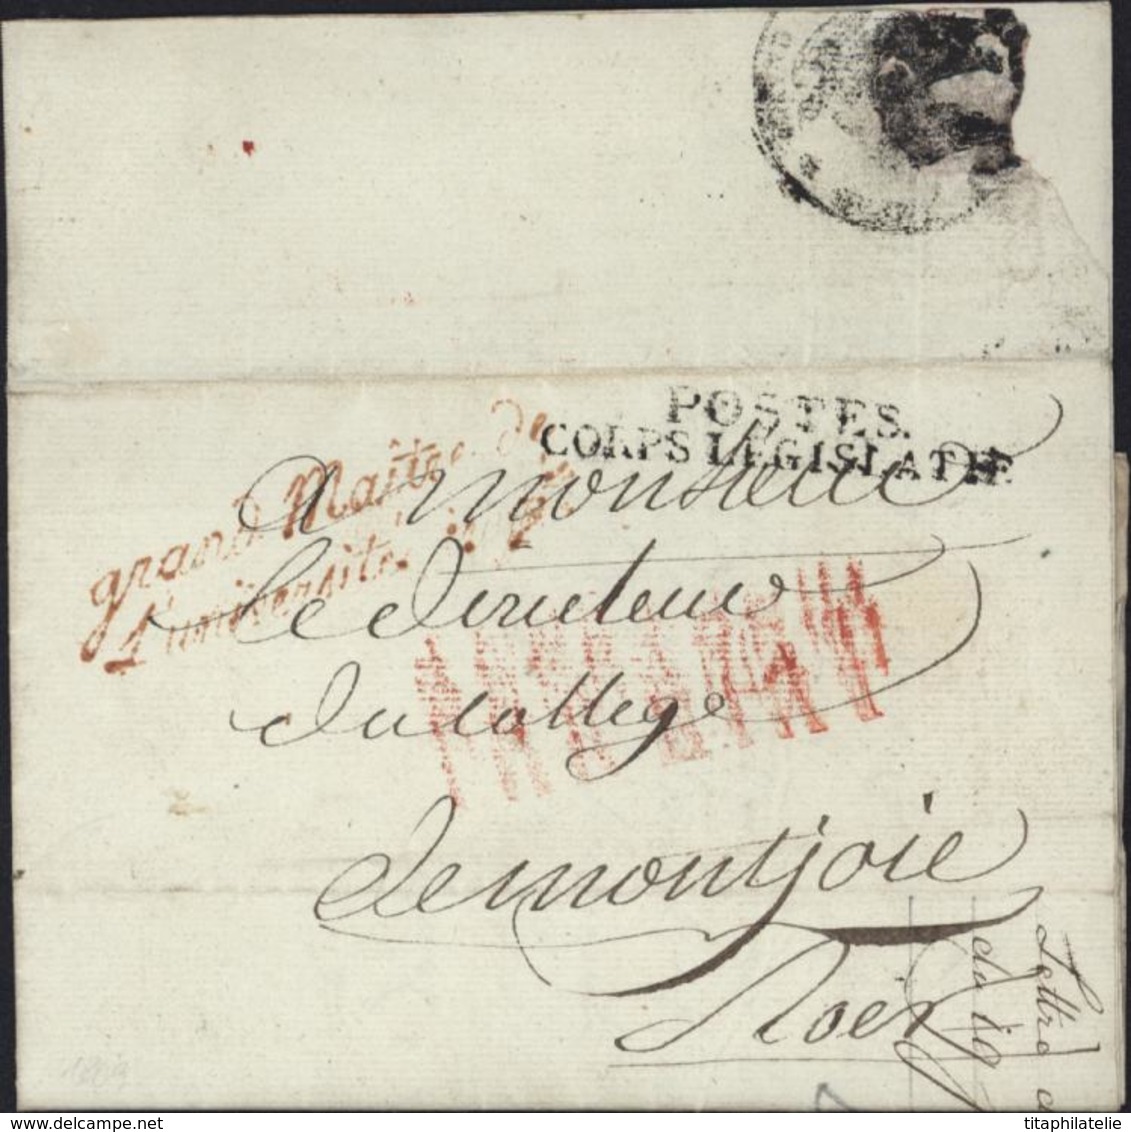 POSTES.
CORPS LEGISLATIF
grand Maître de
l'université i
A monsieur
le directeur
du college
de montjoie
Roer
Lettre d
du 19
1809
titaphilatelie